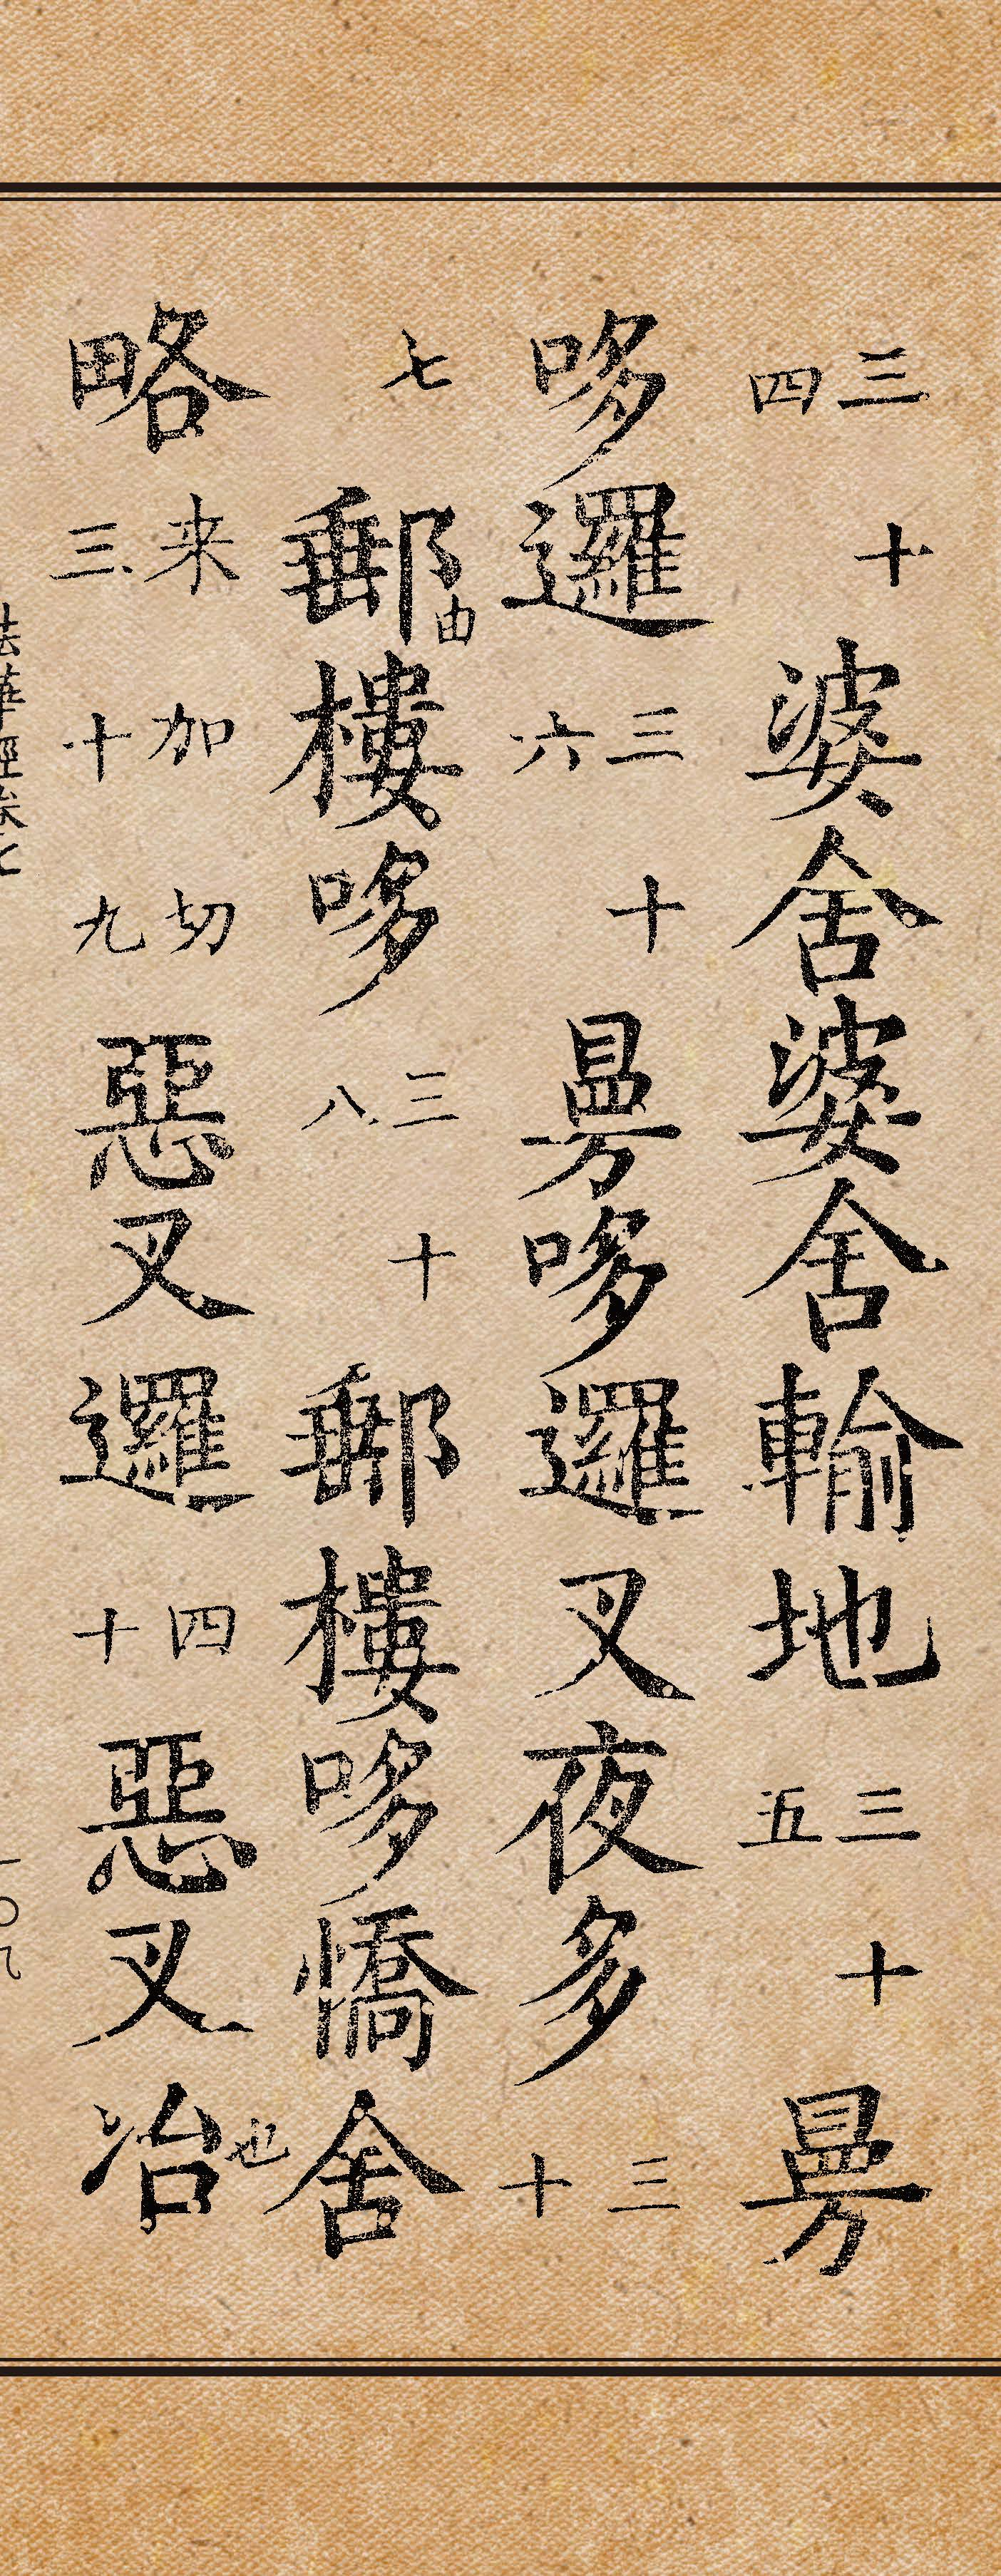 三十四婆舍婆舍輸地三十五曼
哆邏三十六曼哆邏叉夜多三十
七郵由樓哆三十八郵樓哆憍舍
略来加切三十九惡叉邏四十惡叉冶也